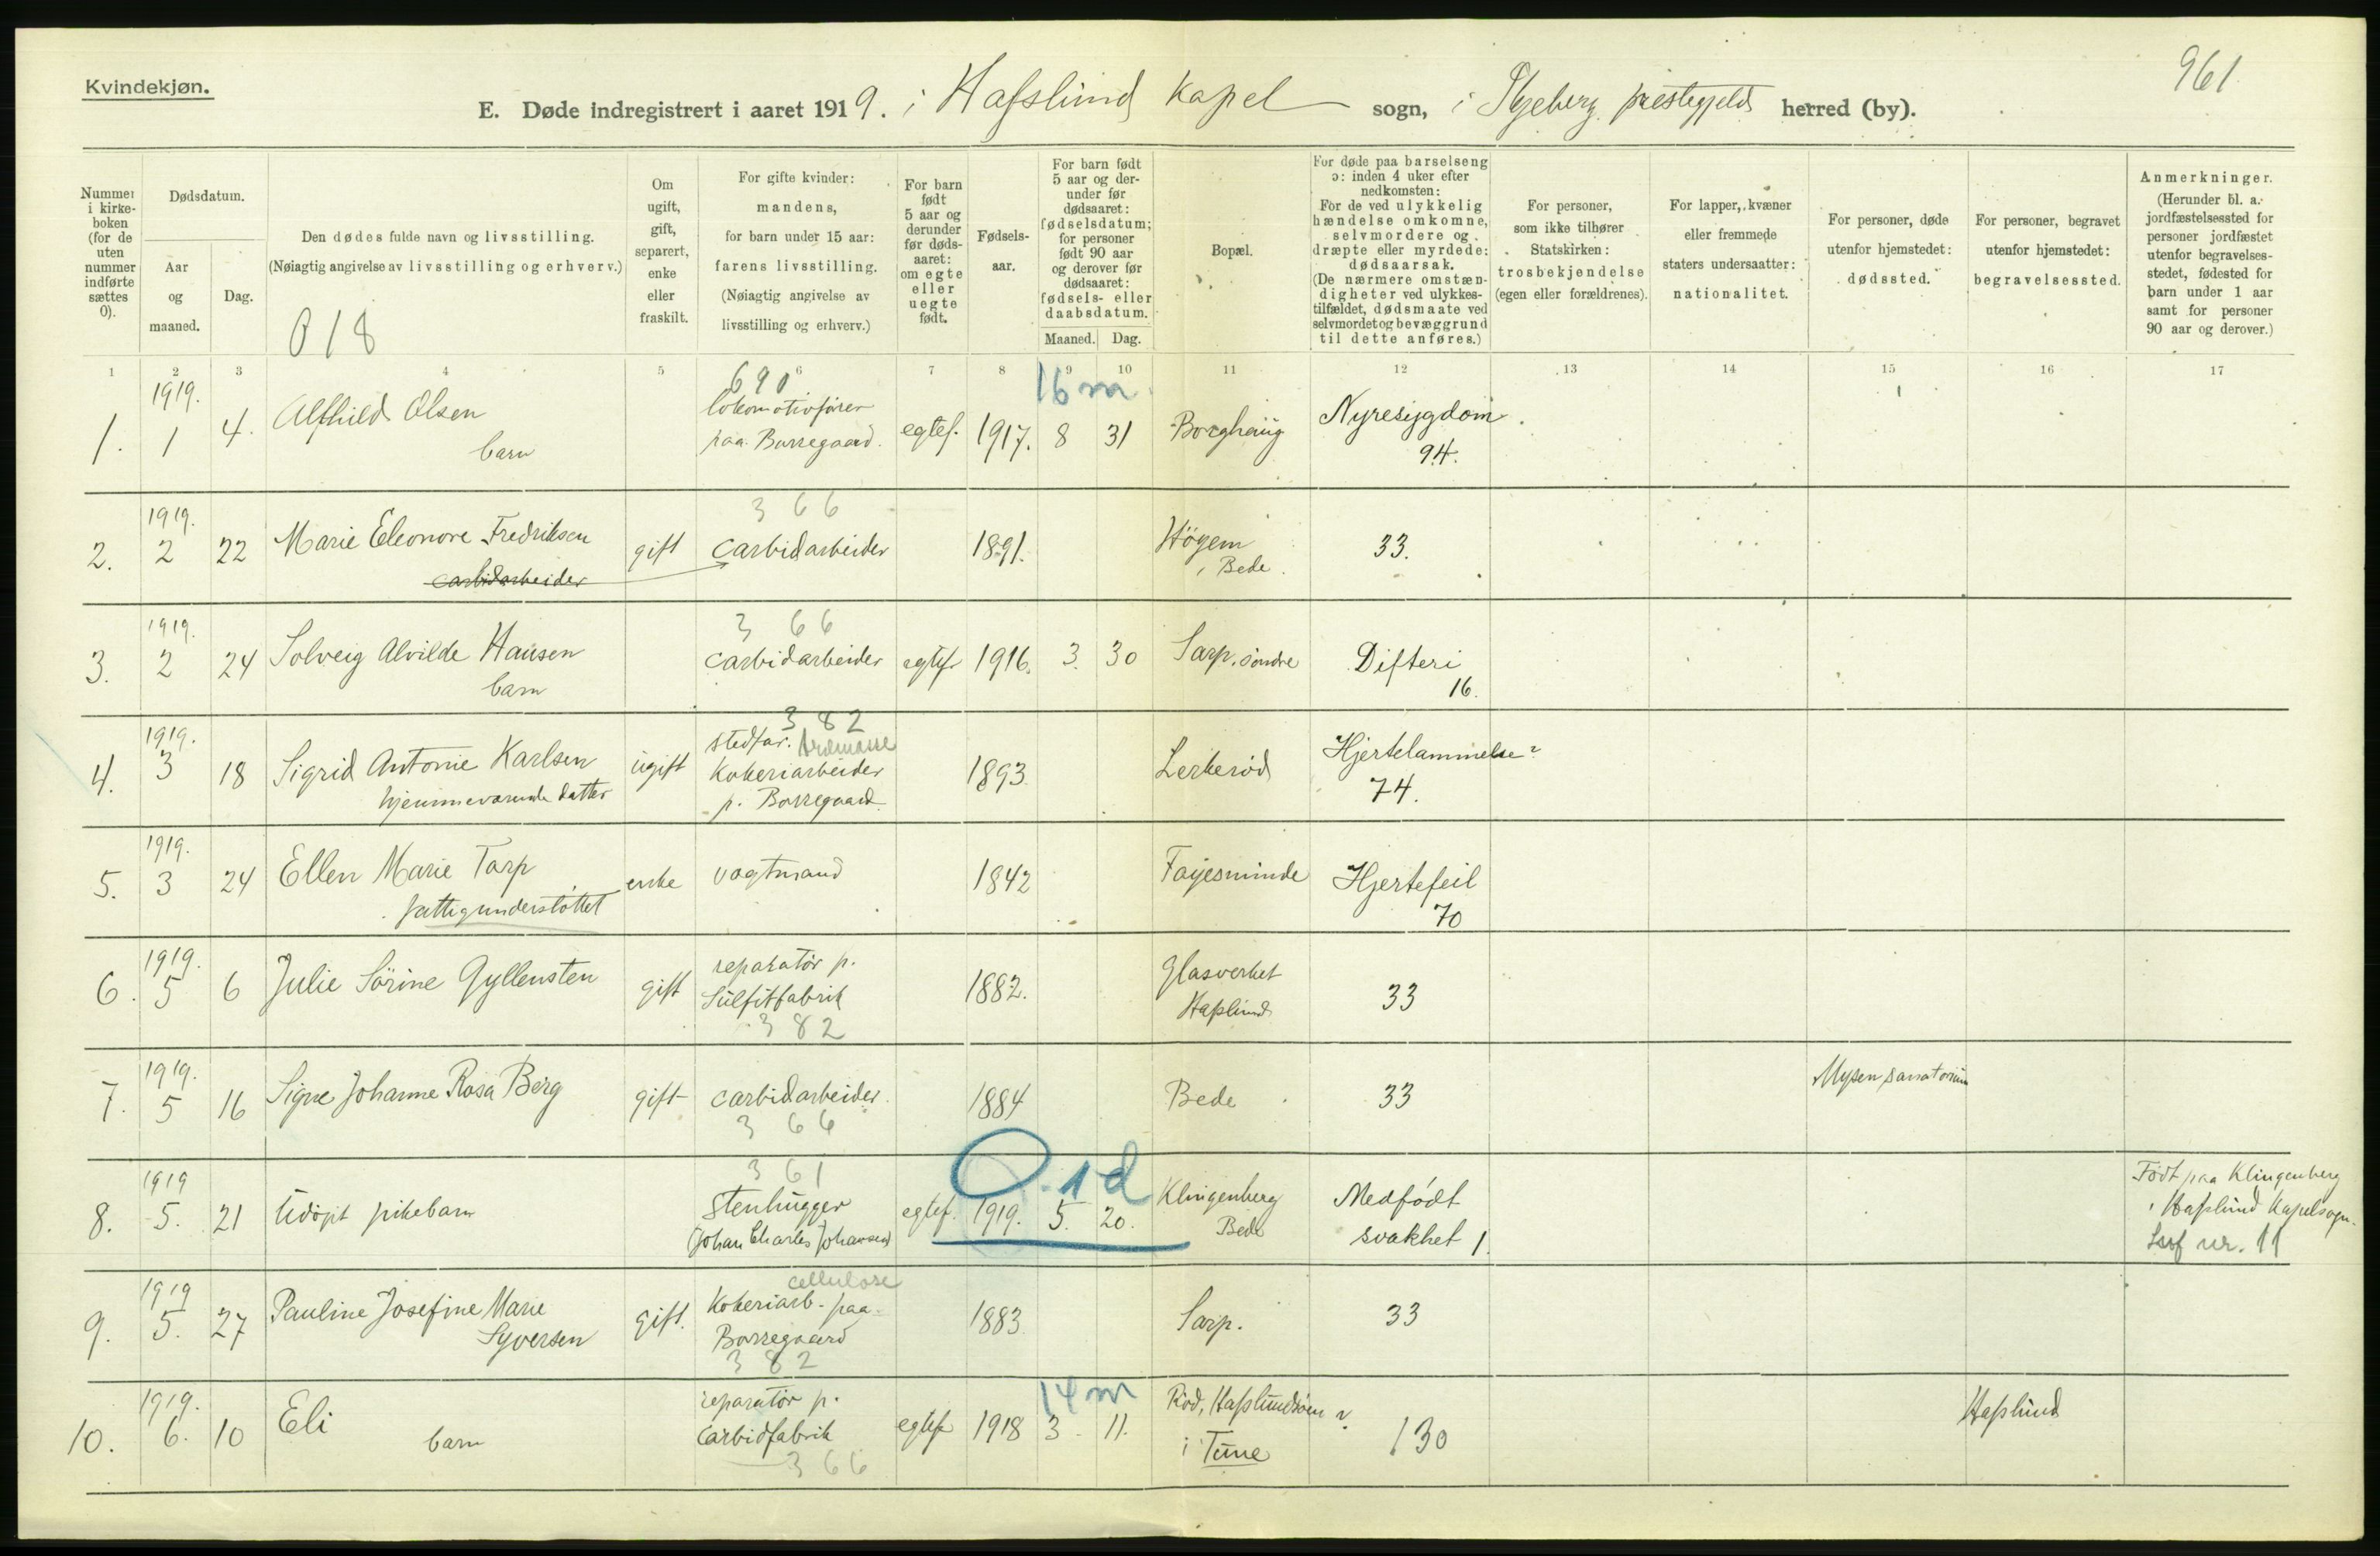 961
Kvindekjøn.
E. Døde indregistrert i aaret 1919. i Hafslund Kapel sogn, i Skjeberg prestegjelds herred (by).
Nummer i kirkeboken (for de uten nummer indførte sættes 0).
Dødsdatum.
Aar og maaned.
Dag.
Den dødes fulde navn og livsstilling.
(Nøiagtig angivelse av livsstilling og erhverv.)
018
Om ugift, gift, separert, enke eller fraskilt.
For gifte kvinder: mandens, for barn under 15 aar: farens livsstilling. (Nøiagtig angivelse av livsstilling og erhverv.)
For barn født 5 aar og derunder før dødsaaret: om egte eller uegte født.
Fødselsaar.
For barn født 5 aar og derunder før dødsaaret: fødselsdatum; for personer født 90 aar og derover før dødsaaret: fødsels- eller daabsdatum.
Maaned. Dag.
Bopæl.
For døde paa barselseng ɔ: inden 4 uker efter nedkomsten: For de ved ulykkelig hændelse omkomne, selvmordere og dræpte eller myrdede: dødsaarsak. (De nærmere omstændigheter ved ulykkestilfældet, dødsmaate ved selvmordet og bevæggrund til dette anføres.)
For personer, som ikke tilhører Statskirken: trosbekjendelse (egen eller forældrenes).
For lapper, kvæner eller fremmede staters undersaatter: nationalitet.
For personer, døde utenfor hjemstedet: dødssted.
For personer, begravet utenfor hjemstedet: begravelsessted.
Anmerkninger. (Herunder bl. a. jordfæstelsessted for personer jordfæstet utenfor begravelsesstedet, fødested for barn under 1 aar samt for personer 90 aar og derover.)
1 2 3 4 5 6 7 8 9 10 11 12 13 14 15 16 17
1. 1919. 1 4. Alfhild Olsen barn 690 lokomotivfører paa Borregaard. egtef. 1917. 8 31 16 m Borghaug Nyresygdom. 94.
2. 1919. 2 22 Marie Eleonore Fredriksen carbidarbeider gift 366 carbidarbeider 1891. Högem i Bede. 33.
3. 1919. 2 24 Solveig Alvilde Hansen barn 366 carbidarbeider egtef 1916. 3. 30 Sarp. söndre Difteri 16.
4. 1919. 3 18 Sigrid Antonie Karlsen hjemmeværende datter ugift 382 stedfar. tremasse Kokeriarbeider p. Borregaard 1893. Lerkeröd Hjertelammelse? 74.
5. 1919. 3 24 Ellen Marie Tarp fattigunderstöttet enke vogtmand 1842 Fayesminde Hjertefeil 70
6. 1919. 5 6 Julie Sörine Gyllensten gift reparatör p. Sulfitfabrik 382 1882. Glasverket Hafslund 33
7. 1919. 5 16 Signe Johanne Rosa Berg gift carbidarbeider. 366 1884 Bede 33 Mysen sanatorium
8. 1919 5. 21 Udöpt pikebarn 361 Stenhugger (Johan Charles Johansen) egtef. 1919. 5. 20. 0. 1 d Klingenberg Bede Medfödt svakhet 1. Födt paa Klingenberg i Hafslund Kapelsogn. nr. 11
9. 1919 5. 27 Pauline Josefine Marie Syversen gift. cellulose Kokeriarb. paa Borregaard 382 1883. Sarp. 33
10. 1919. 6. 10 Eli barn reparatör p. Carbidfabrik 366 egtef 1918 3 11. 14 m Röd, Hafslundsöen ? i Tune 130 Hafslund